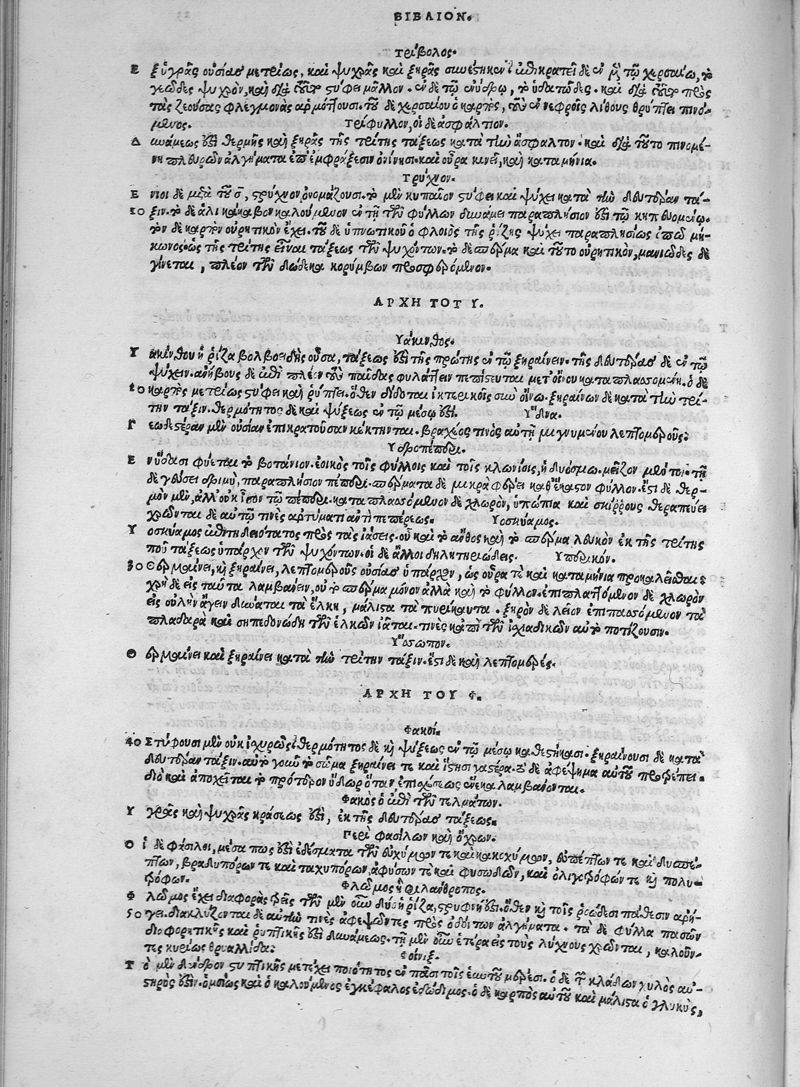 ΒΙΒΛΙΟΝ.
Τρίβολος.
Ε ξ ὑγρᾶς οὐσίας μετρίως, καὶ ψυχρᾶς καὶ ξηρᾶς
γεῶδες ψυχρὸν, καὶ διὰ τοῦτο στύφει μᾶλλον. ἐν δὲ τῷ ἐνύδρῳ, τὸ ὑδατῶδες. καὶ διὰ τοῦτο πρὸς
τὰς ζεούσας φλεγμονὰς ἁρμόττουσι. τοῦ δὲ χερσαίου ὁ καρπὸς, τοὺς ἐν νεφροῖς λίθους θρύπτει πινό-
μενος. Τρίφυλλον, οἱ δὲ ἀσφάλτιον.
Δ υνάμεως ἐστὶ θερμῆς καὶ ξηρᾶς τῆς τρίτης τάξεως κατὰ τὴν ἄσφαλτον. καὶ διὰ τοῦτο πινομέ-
νη πλευρῶν ἀλγήματα ἐπ' ἐμφράξεσιν ὀνίνησι. καὶ οὖρα κινεῖ, καὶ καταμήνια.
Τρύχνον.
Ε νιοι δὲ μετὰ τοῦ σ, στρύχνον ὀνομάζουσι. τὸ μὲν κηπαῖον στύφει καὶ ψύχει κατὰ τὴν δευτέραν τά-
10 ξιν. τὸ δὲ ἁλικάκαβον καλούμενον ἐν τῇ τῶν φύλλων δυνάμει παραπλήσιον ἐστὶ τῷ κηπευομένῳ.
τὸν δὲ καρπὸν οὐρητικὸν ἔχει. τοῦ δὲ ὑπνωτικοῦ ὁ φλοιὸς τῆς ῥίζης ψύχει παραπλησίως ὀπῷ μή-
κωνος. ὡς τῆς τρίτης εἶναι τάξεως τῶν ψυχόντων. τὸ δὲ σπέρμα καὶ τοῦτο οὐρητικὸν, μανιῶδες δὲ
γίνεται, πλέον τῶν δώδεκα κορύμβων προσφερόμενον.
ΑΡΧΗ ΤΟΥ Υ.
Υάκινθος.
Υ ακίνθου ἡ ῥίζα βολβοειδὴς οὖσα, τάξεως ἐστὶ τῆς πρώτης ἐν τῷ ξηραίνειν. τῆς δευτέρας δὲ ἐν τῷ
ψύχειν. ἀνήβους δὲ ἐπὶ πλέον τοὺς παῖδας φυλάττειν πεπίστευται μετ' οἴνου καταπλασσομένη. ὁ δὲ
20 καρπὸς μετρίως στύφει καὶ ῥύπτει. ὅθεν δίδοται ἰκτερικοῖς σὺν οἴνῳ. ξηραίνων δὲ κατὰ τὴν τρί-
την τάξιν. θερμότητος δὲ καὶ ψύξεως ἐν τῷ μέσῳ ἐστί.
Γ εωδεστέραν μὲν οὐσίαν ἐπικρατοῦσαν κέκτηνται. βραχείας τινὸς αὐτῇ μιγνυμένου λεπτομεροῦς.
Υδροπέπερι.
Ε νύδασι φύεται τὸ βοτάνιον. ἐοικὸς τοῖς φύλλοις καὶ τοῖς κλωνίοις, ἡδυόσμῳ. μεῖζον μέντοι. τῇ
δὲ γεύσει δριμὺ, παραπλήσιον πέπερι. σπέρματα δὲ μικρὰ φέρει καθ' ἕκαστον φύλλον. ἔστι δὲ θερ-
μὸν μὲν, ἀλλ' οὐκ ἴσον τῷ πέπερι. καταπλασσόμενον δὲ χλωρὸν, ὑπώπια καὶ σκίρρους θεραπεύει
χρῶνται δὲ αὐτῷ τινὲς ἀρτύματι ἀντὶ πεπέρεως. Υοσκύαμος.
Υ οσκύαμος ἐπιτηδειότατος πρὸς τὰς ἰάσεις. οὗ καὶ τὸ ἄνθος καὶ τὸ σπέρμα λευκὸν ἐκ τῆς τρίτης
που τάξεως ὑπάρχον τῶν ψυχόντων. οἱ δὲ ἄλλοι δηλητηριώδεις. Υπερικόν.
30 Θ ερμαίνει, καὶ ξηραίνει, λεπτομεροῦς οὐσίας ὑπάρχον, ὡς οὖρά τε καὶ καταμήνια προκαλεῖσθαι.
χρὴ δὲ εἰς ταῦτα λαμβάνειν, οὐ τὸ σπέρμα μόνον ἀλλὰ καὶ τὸ φύλλον. ἐπιπλαττόμενον δὲ χλωρὸν
εἰς οὐλὴν ἄγειν δύναται τὰ ἕλκη, μάλιστα τὰ πυρίκαυτα. ξηρὸν δὲ λεῖον ἐπιπασσόμενον τὰ
πλαδαρὰ καὶ σηπεδονώδη τῶν ἑλκῶν ἰᾶται. τινὲς καὶ ἐπὶ τῶν ἰσχιαδικῶν αὐτὸ ποτίζουσιν.
Υσσωπον.
Θ ερμαίνει καὶ ξηραίνει κατὰ τὴν τρίτην τάξιν. ἔστι δὲ καὶ λεπτομερές.
ΑΡΧΗ ΤΟΥ Φ.
Φακοί.
40 Στύφουσι μὲν οὐκ ἰσχυρῶς. θερμότητος δὲ καὶ ψύξεως ἐν τῷ μέσῳ καθεστήκασι. ξηραίνουσι δὲ κατὰ
δευτέραν τάξιν. αὐτὸ γοῦν τὸ σῶμα ξηραίνει τε καὶ ἵστησι γαστέρα. τὸ δὲ ἀφέψημα αὐτοῦ προτρέπει.
διὸ καὶ ἀποχεῖται τὸ πρότερον ὕδωρ ὅταν ἐπισχέσεως ἕνεκα λαμβάνονται.
Φακὸς ὁ ἐπὶ τῶν τελμάτων.
Υ γρᾶς καὶ ψυχρᾶς κράσεως ἐστὶ, ἐκ τῆς δευτέρας τάξεως.
Περὶ φασίλων καὶ ὤχρων.
Ο ἱ δὲ φάσιλοι, μέσα πως ἐστὶ ἐδέσματα τῶν εὐχύμων τε καὶ κακοχύμων, εὐπέπτων τε καὶ δυσπέ-
πτων, βραδυπόρων τε καὶ ταχυπόρων, ἀφύσων τε καὶ φυσωδῶν, καὶ ὀλιγοτρόφων τε καὶ πολυ-
τρόφων. Φλόμος ἢ
Φ λόμος ἔχει διαφοράς. ἧς τῶν μὲν οὖν δύο ἡ ῥίζα, στρυφνή ἐστι. ὅθεν καὶ τοῖς ῥοώδεσι πάθεσιν ἀρή-
50 γει. διακλύζονται δὲ αὐτὴν τινὲς ἀφέψοντες πρὸς ὀδόντων ἀλγήματα. τὰ δὲ φύλλα πασῶν
διαφορητικῆς καὶ ῥυπτικῆς ἐστὶ δυνάμεως. τῇ μὲν οὖν ἑτέρᾳ εἰς τοὺς λύχνους χρῶνται, καλοῦν-
τες κυρίως θρυαλλίδα:
Φοίνιξ.
Τ ὸ μὲν δένδρον στυπτικῆς μετέχει ποιότητος ἐν πᾶσι τοῖς ἑαυτοῦ μέρεσι. ὁ δὲ τῶν κλάδων χυλὸς αὐ-
στηρός ἐστιν. ὁμοίως καὶ ὁ καλούμενος ἐγκέφαλος ἐδώδιμος. ὁ δὲ καρπὸς αὐτοῦ καὶ μάλιστα ὁ γλυκὺς,